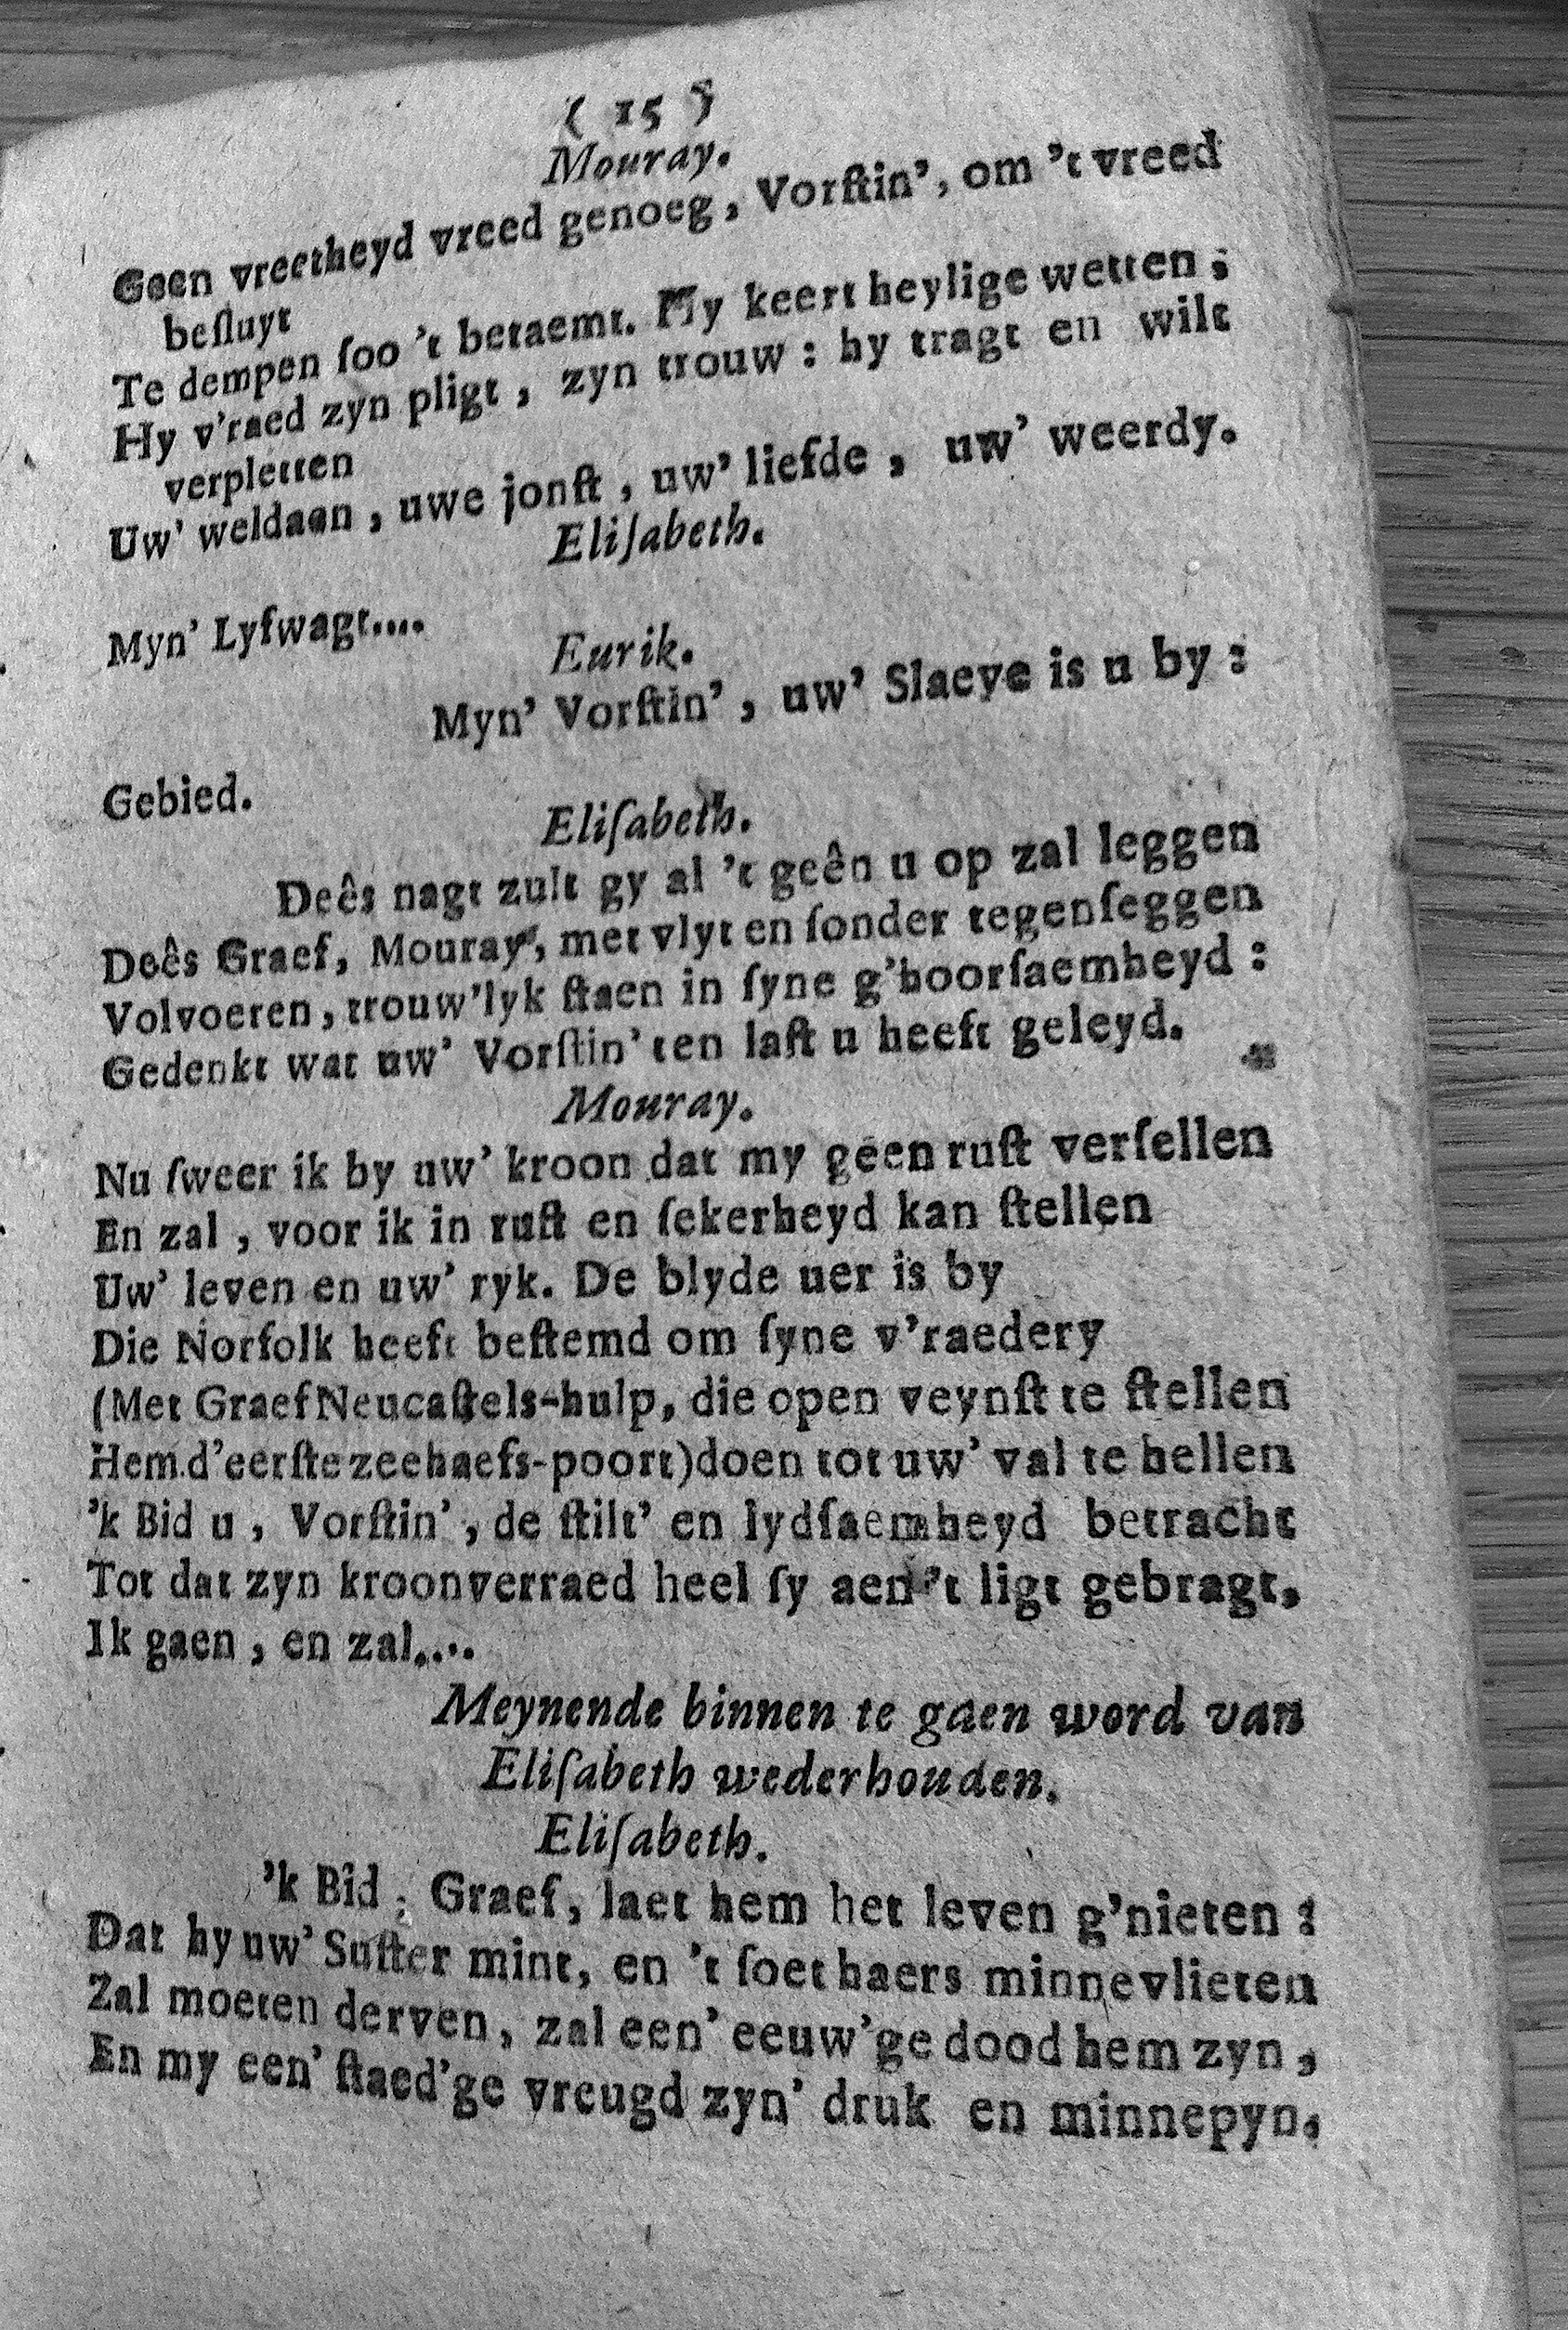 ( 15 )
Mouray.
Geen vreetheyd vreed genoeg, Vorſtin', om 't vreed
beſluyt
Te dempen ſoo 't betaemt. Hy keert heylige wetten;
Hy v'raed zyn pligt, zyn trouw: hy tragt en wilt
verpletten
Uw' weldaan, uwe jonſt, uw' liefde, uw' weerdy.
Eliſabeth.
Myn' Lyfwagt....
Eurik.
Myn' Vorſtin', uw' Slaeve is u by:
Gebied.
Eliſabeth.
Deês nagt zult gy al 't geên u op zal leggen
Deês Graef, Mouray, met vlyt en ſonder tegenſeggen
Volvoeren, trouw'lyk ſtaen in ſyne g'hoorſaemheyd:
Gedenkt wat uw' Vorſtin' ten laſt u heeft geleyd.
Mouray.
Nu ſweer ik by uw' kroon dat my geen ruſt verſellen
En zal, voor ik in ruſt en ſekerheyd kan ſtellen
Uw' leven en uw' ryk. De blyde uer is by
Die Norfolk heeft beſtemd om ſyne v'raedery
(Met Graef Neucaſtels-hulp, die open veynſt te ſtellen
Hem d'eerſte zeehaefs-poort) doen tot uw' val te hellen
'k Bid u, Vorſtin', de ſtilt' en lydſaemheyd betracht
Tot dat zyn kroonverraed heel ſy aen 't ligt gebragt,
Ik gaen, en zal....
Meynende binnen te gaen word van
Eliſabeth wederhouden.
Eliſabeth.
'k Bid, Graef, laet hem het leven g'nieten:
Dat hy uw' Suſter mint, en 't ſoet haers minnevlieten
Zal moeten derven, zal een' eeuw'ge dood hem zyn,
En my een' ſtaed'ge vreugd zyn' druk en minnepyn.